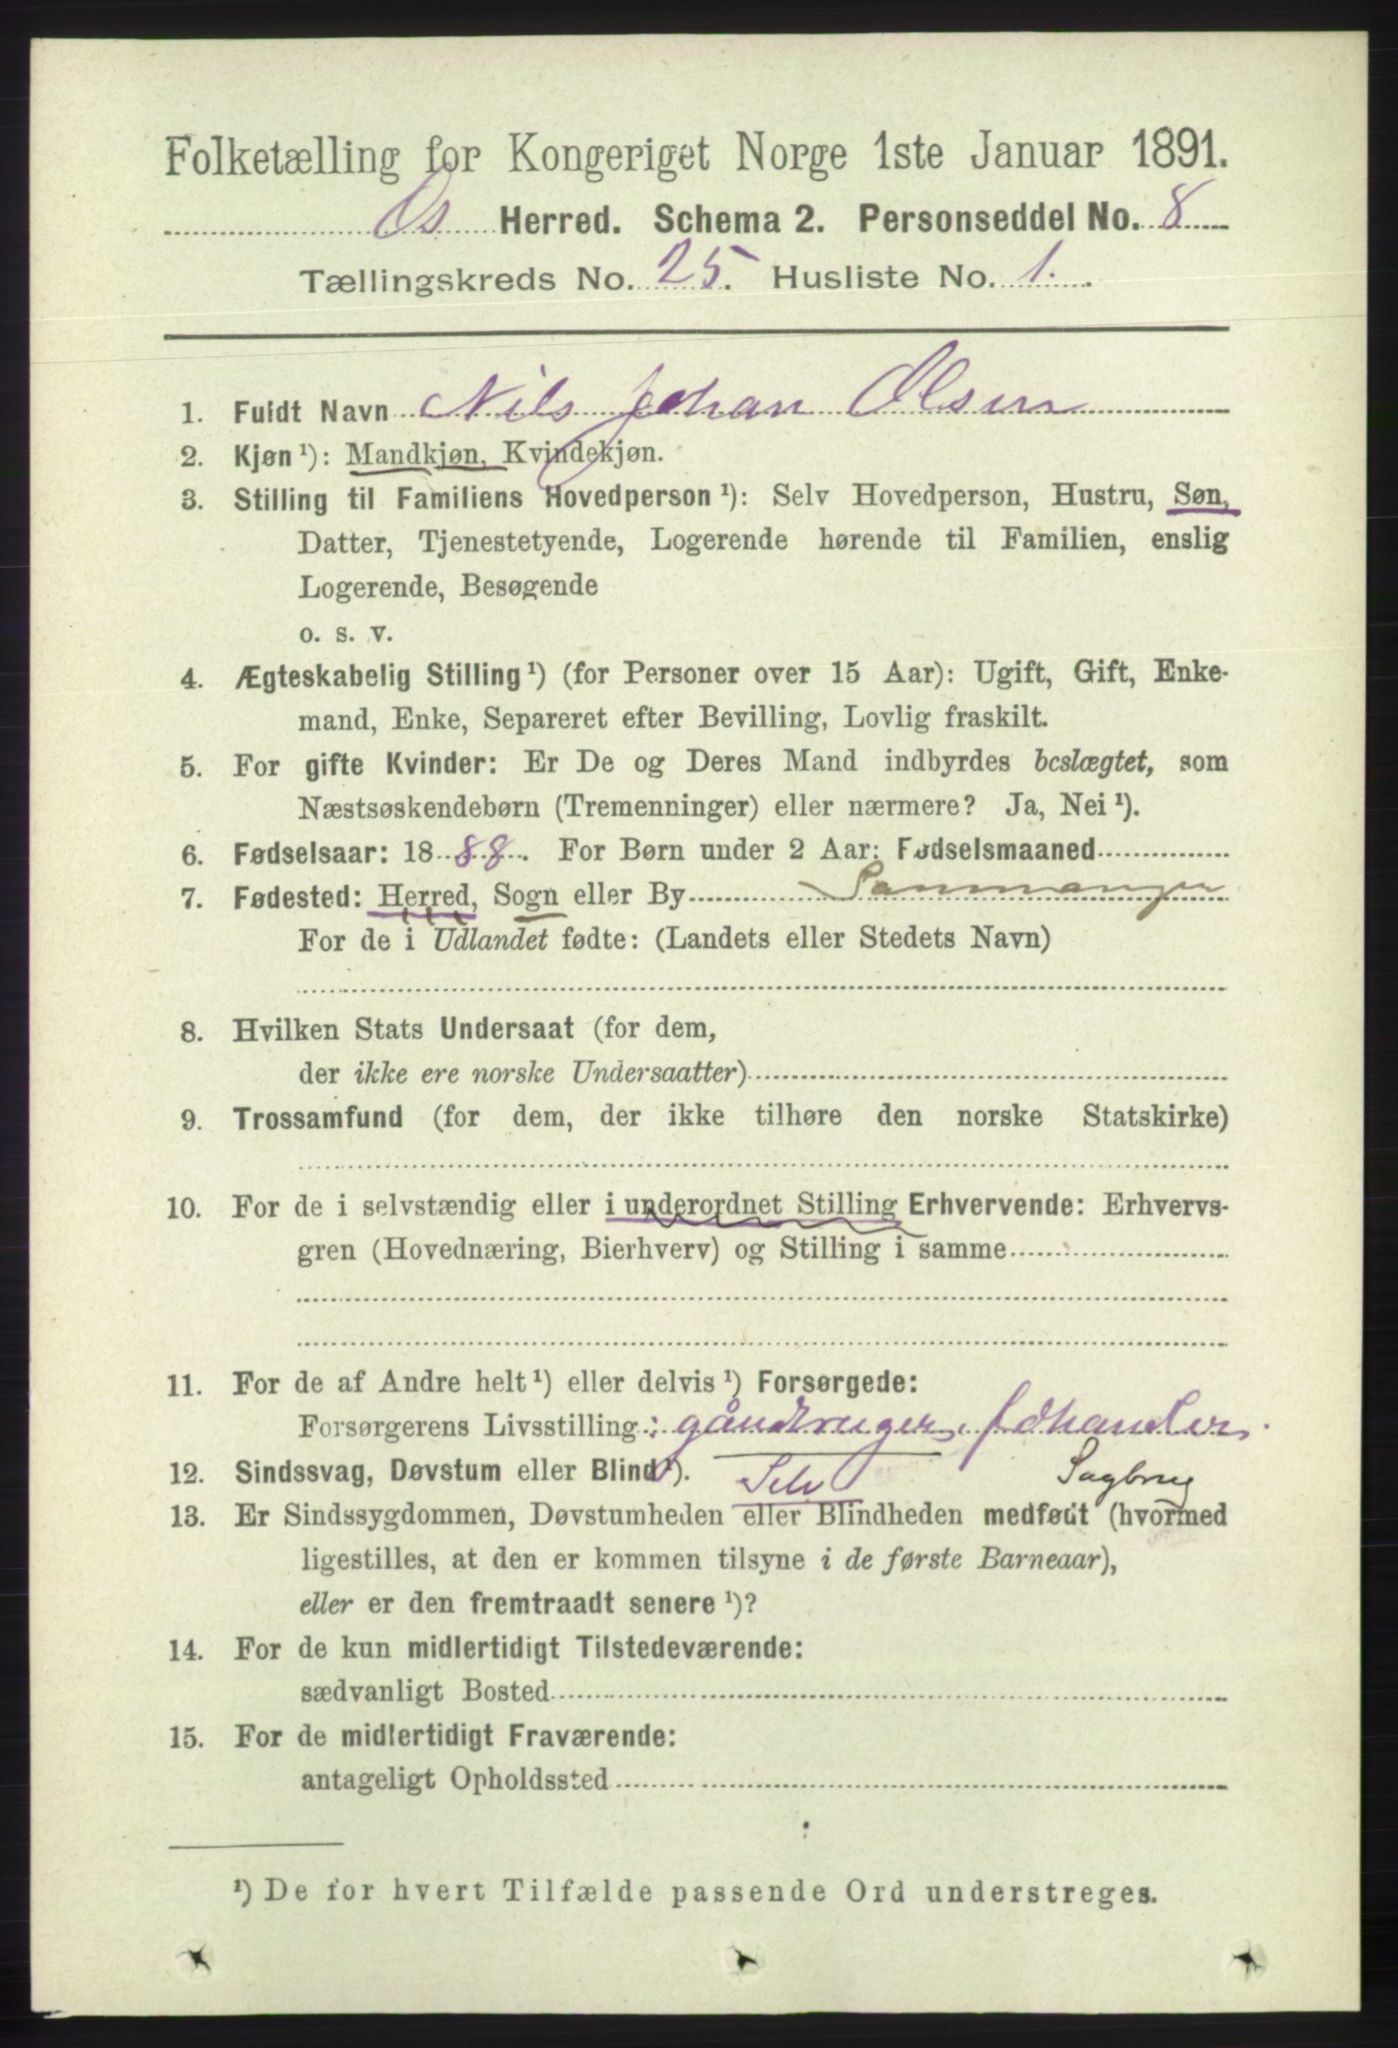 Folketælling for Kongeriget Norge 1ste Januar 1891.
Os Herred. Schema 2. Personseddel No. 8
Tællingskreds No. 25. Husliste No. 1.
1. Fuldt Navn Nils Johan Olsen
2. Kjøn ¹): Mandkjøn, Kvindekjøn.
3. Stilling til Familiens Hovedperson ¹): Selv Hovedperson, Hustru, Søn,
Datter, Tjenestetyende, Logerende hørende til Familien, enslig
Logerende, Besøgende
o. s. v.
4. Ægteskabelig Stilling ¹) (for Personer over 15 Aar): Ugift, Gift, Enke-
mand, Enke, Separeret efter Bevilling, Lovlig fraskilt.
5. For gifte Kvinder: Er De og Deres Mand indbyrdes beslægtet, som
Næstsøskendebørn (Tremenninger) eller nærmere? Ja, Nei ¹).
6. Fødselsaar: 1888. For Børn under 2 Aar: Fødselsmaaned
7. Fødested: Herred, Sogn eller By Sammanger
For de i Udlandet fødte: (Landets eller Stedets Navn)
8. Hvilken Stats Undersaat (for dem,
der ikke ere norske Undersaatter)
9. Trossamfund (for dem, der ikke tilhøre den norske Statskirke)
10. For de i selvstændig eller i underordnet Stilling Erhvervende: Erhvervs-
gren (Hovednæring, Bierhverv) og Stilling i samme
11. For de af Andre helt ¹) eller delvis ¹) Forsørgede:
Forsørgerens Livsstilling: gårdbruger,
12. Sindssvag, Døvstum eller Blind ¹). Selv Sagbrug
13. Er Sindssygdommen, Døvstumheden eller Blindheden medfødt (hvormed
ligestilles, at den er kommen tilsyne i de første Barneaar),
eller er den fremtraadt senere ¹)?
14. For de kun midlertidigt Tilstedeværende:
sædvanligt Bosted
15. For de midlertidigt Fraværende:
antageligt Opholdssted
¹) De for hvert Tilfælde passende Ord understreges.